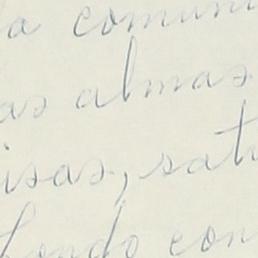 a comuni
as almas
isas, sat
fondo con